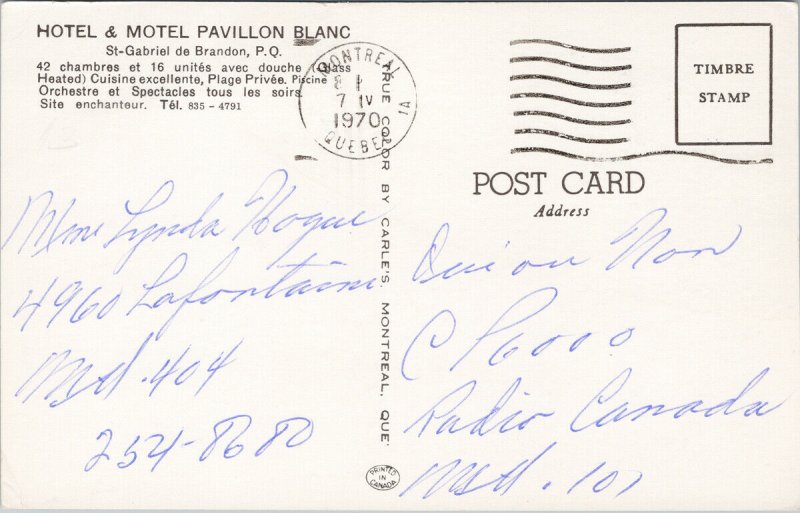 HOTEL & MOTEL PAVILLON BLANC
St-Gabriel de Brandon, P.Q.
42 chambres et 16 unités avec douche (Glass
Heated) Cuisine excellente, Plage Privée. Piscine
Orchestre et Spectacles tous les soirs
Site enchanteur. Tél. 835 - 4791
MONTREAL
7 IV
1970
QUEBEC
TIMBRE
STAMP
POST CARD
Address
TRUE COLOR BY CARLE'S MONTREAL, QUE
Mme Lynda Hogue
4960 Lafontaine
Mtl. 404
254-8680
Oui ou Non
C P 6000
Radio Canada
Mtl. 101
PRINTED
IN
CANADA